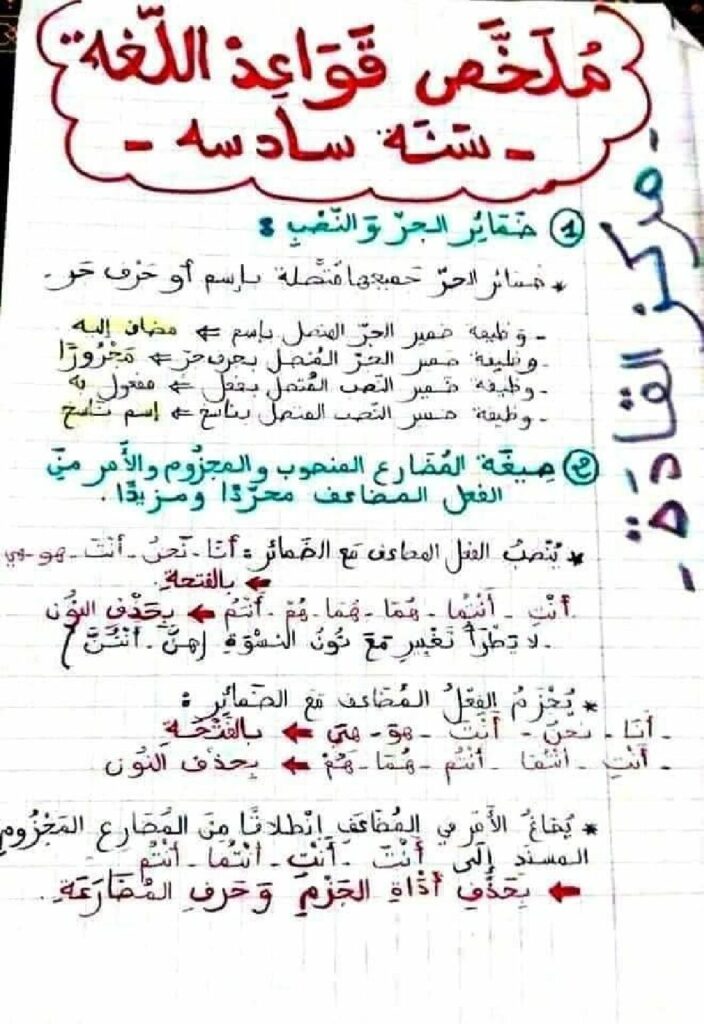 مُلَخَّص قَوَاعِد اللّغة
- سَنَة سادسه -
مركز القادَة -
1 ضَمَائِر الجرّ وَالنَّصْبِ :
* ضمائر الجرّ جميعها مُتَّصلة بإسم أو حَرْف جر.
- وظيفة ضمير الجرّ المتصل بإسم ⇐ مضاف إليه
- وظيفة ضمير الجرّ المُتصل بحرف جرّ ⇐ مَجْرُورًا
- وظيفة ضَمير النّصب المُتصل بفعل ⇐ مفعول به
- وظيفة ضمير النّصب المتصل بناسخ ⇐ إسم ناسخ
2 صِيغَة المُضَارع المنصوب والمجزُوم والأَمر منَ
الفعل المضاعف مجرّدًا ومزيدًا.
* يُنْصَبُ الفعل المضاعف مَع الضَّمائر : أنَا - نَحنُ - أنْتَ - هو - هي
← بالفتحة.
أنْتِ - أنْتُمَا - هُمَا - هُمَا - هُمْ - أنتُم ← بِحَذْف النّون
- لا يَطْرَأُ تَغْيير مَعَ نُونُ النّسْوَةِ (هنَّ - أنْتُنَّ)
* يُجْزَمُ الفِعْلُ المُضَاعف مَع الضَمائِر :
- أنَا - نحنُ - أنْتَ - هوَ - هيَ ← بالفَتْحَةِ
- أنْتِ - أنتُمَا - أنتُم - هُمَا - هُمْ ← بِحذف النّون
* يُصَاغُ الأمْر في المُضَاعَفِ اِنْطلاقًا مِنَ المُضَارع المَجْزُوم
المسندِ إلَى أنْتَ - أَنْتِ - أنتُمَا - أنْتُم
← بِحَذْفِ أدَاة الجَزْمِ وَحَرفِ المُضَارَعَةِ.